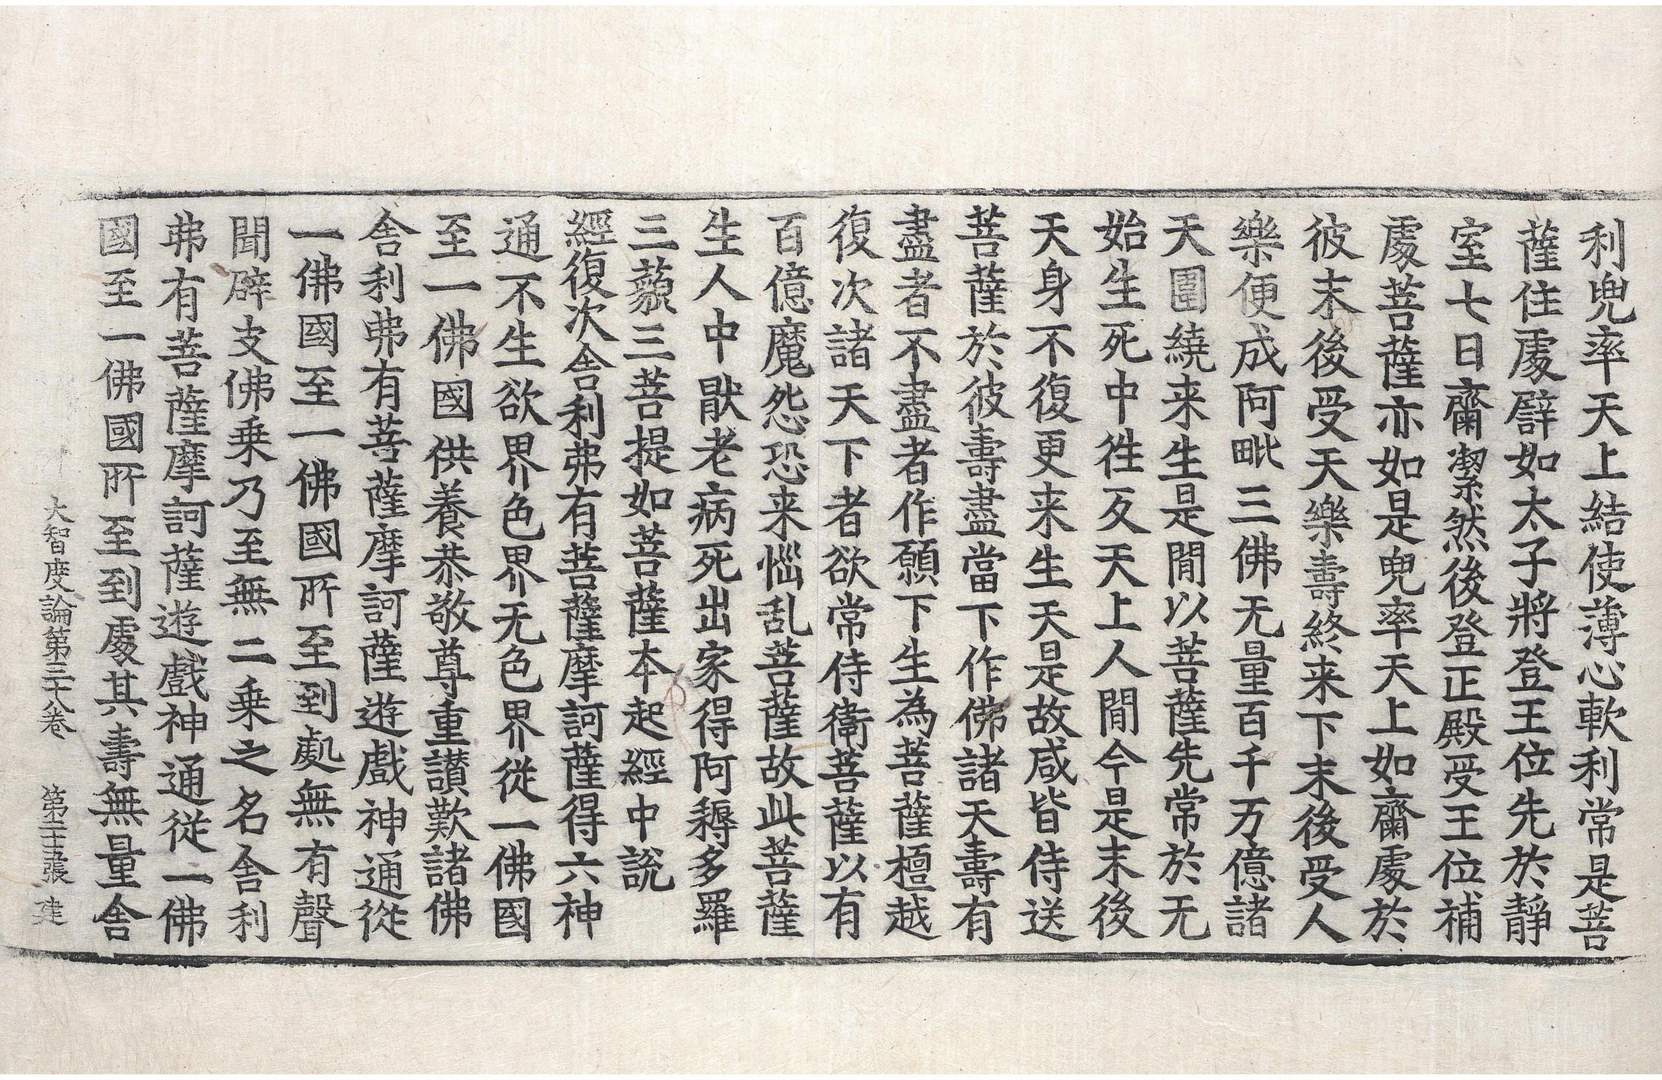 利兜率天上結使薄心軟利常是菩
薩住處譬如太子將登王位先於靜
室七日齋潔然後登正殿受王位補
處菩薩亦如是兜率天上如齋處於
彼末後受天樂壽終来下末後受人
樂便成阿毗三佛无量百千万億諸
天圍繞来生是閒以菩薩先常於无
始生死中徃反天上人閒今是末後
天身不復更来生天是故咸皆侍送
菩薩於彼壽盡當下作佛諸天壽有
盡者不盡者作願下生為菩薩檀越
復次諸天下者欲常侍衛菩薩以有
百億魔怨恐来惱乱菩薩故此菩薩
生人中猒老病死出家得阿耨多羅
三藐三菩提如菩薩本起經中說
經復次舍利弗有菩薩摩訶薩得六神
通不生欲界色界无色界從一佛國
至一佛國供養恭敬尊重讃歎諸佛
舍利弗有菩薩摩訶薩遊戲神通從
一佛國至一佛國所至到處無有聲
聞辟支佛乗乃至無二乗之名舍利
弗有菩薩摩訶薩遊戲神通從一佛
國至一佛國所至到處其壽無量舍
大智度論第三十八卷 第二十張 建